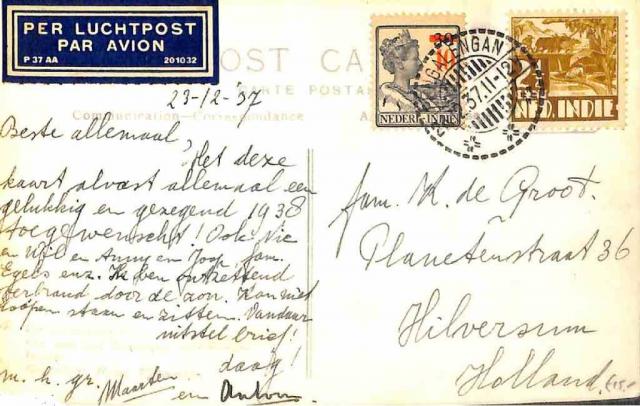 PER LUCHTPOST
PAR AVION
P 37 AA
201032
POST CA
CARTE POSTA
Communication—Correspondance
NEDERL INDIË
10
NED. INDIE
37.11-12
23-12-'37
Beste allemaal,
Met deze
kaart alvast allemaal een
gelukkig en gezegend 1938
toegewenscht! Ook Vic
en Wil en Anny en Joop, fam.
Egers enz. Ik ben ontzettend
verbrand door de zon. Kan niet
loopen staan en zitten. Vandaar
uitstel brief!
daag!
m. h. gr. Maarten
en Anton
fam. K. de Groot.
Planetenstraat 36
Hilversum
Holland.